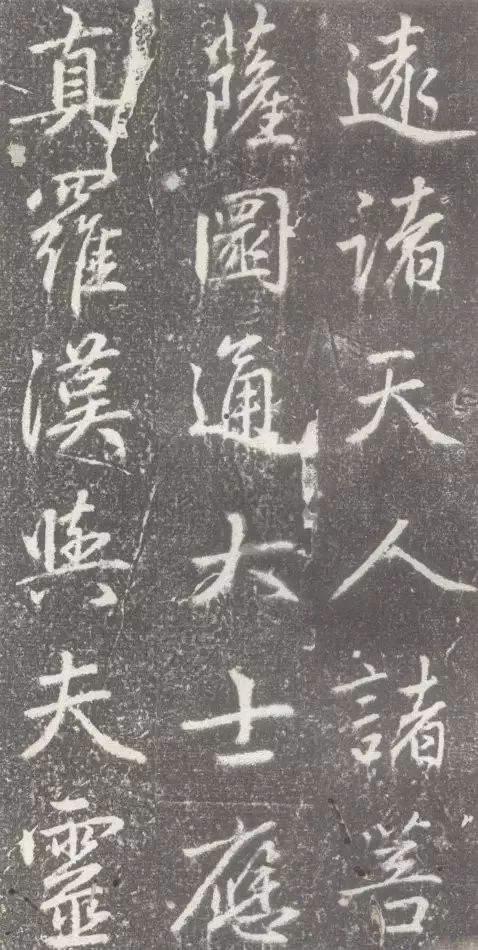 逮諸天人諸菩
薩圓通大士應
真羅漢與夫靈